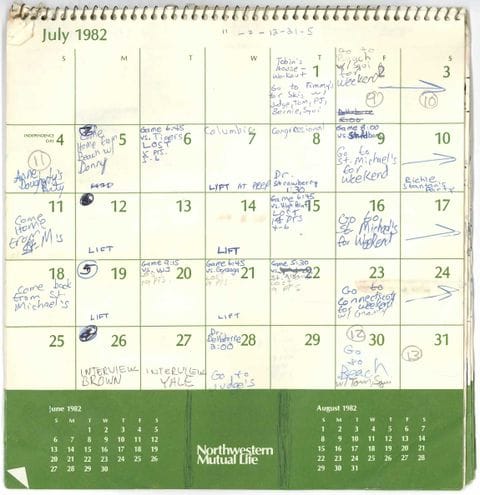 July 1982
S M T W T F S
Tobin's
House -
Workout
1
Go to Timmy's
for Skis w/
Judge, Tom, PJ,
Bernie, Squi
Go to
Beach
w/ Squi
for
weekend
2
9
3
10
INDEPENDENCE
DAY
4
11
Anne
Dougherty's
Party
5
Come
Home from
Beach w/
Donny
Game 6:45
vs. Tigers
LOST
6
LIFT AT PREP
Columbia
7
Congressional
8
Dr.
1:30
Game 8:00
9
Go to
St. Michael's
for
weekend
10
Richie
Party
11
Come
Home
from
St. M's
12
LIFT
13
14
LIFT
Game 6:45
Lost
15
16
Go to
St. Michael's
for Weekend
17
18
Come back
from St.
Michael's
19
LIFT
Game 9:15
20
Game 6:45
21
LIFT
Game 5:30
22
23
Go to
Connecticut
for weekend
w/ Granny
24
25
26
INTERVIEW
BROWN
27
INTERVIEW
YALE
Dr.
2:00
28
Go to
Judge's
29
12
30
Go
to
Beach
w/ Tom, Squi
31
13
June 1982
S M T W T F S
1 2 3 4 5
6 7 8 9 10 11 12
13 14 15 16 17 18 19
20 21 22 23 24 25 26
27 28 29 30
Northwestern
Mutual Life
August 1982
S M T W T F S
1 2 3 4 5 6 7
8 9 10 11 12 13 14
15 16 17 18 19 20 21
22 23 24 25 26 27 28
29 30 31